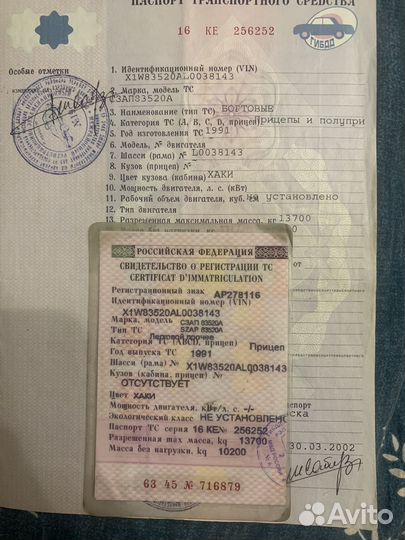 ПАСПОРТ ТРАНСПОРТНОГО СРЕДСТВА
16 КЕ 256252
ГИБДД
Особые отметки
1. Идентификационный номер (VIN)
X1W83520AL0038143
2. Марка, модель ТС
СЗАП83520А
3. Наименование (тип ТС) БОРТОВЫЕ
4. Категория ТС (А, В, С, D, прицеп) Прицепы и полупри
5. Год изготовления ТС 1991
6. Модель, № двигателя
7. Шасси (рама) № L0038143
8. Кузов (прицеп) №
9. Цвет кузова (кабины) ХАКИ
10. Мощность двигателя, л. с. (кВт)
11. Рабочий объем двигателя, куб. см установлено
12. Тип двигателя
13. Разрешенная максимальная масса, кг 13700
РОССИЙСКАЯ ФЕДЕРАЦИЯ
СВИДЕТЕЛЬСТВО О РЕГИСТРАЦИИ ТС
CERTIFICAT D'IMMATRICULATION
Регистрационный знак АР278116
Идентификационный номер (VIN)
X1W83520AL0038143
Марка, модель СЗАП 83520А
SZAP 83520A
Тип ТС Легковой прочее
Категория ТС (ABCD, прицеп) Прицеп
Год выпуска ТС 1991
Шасси (рама) № X1W83520AL0038143
Кузов (кабина, прицеп) №
ОТСУТСТВУЕТ
Цвет ХАКИ
Мощность двигателя, кВт/л. с. -/-
Экологический класс НЕ УСТАНОВЛЕНО
Паспорт ТС серия 16 КЕ № 256252
Разрешенная max масса, kg 13700
Масса без нагрузки, kg 10200
63 45 № 716879
30.03.2002
Avito